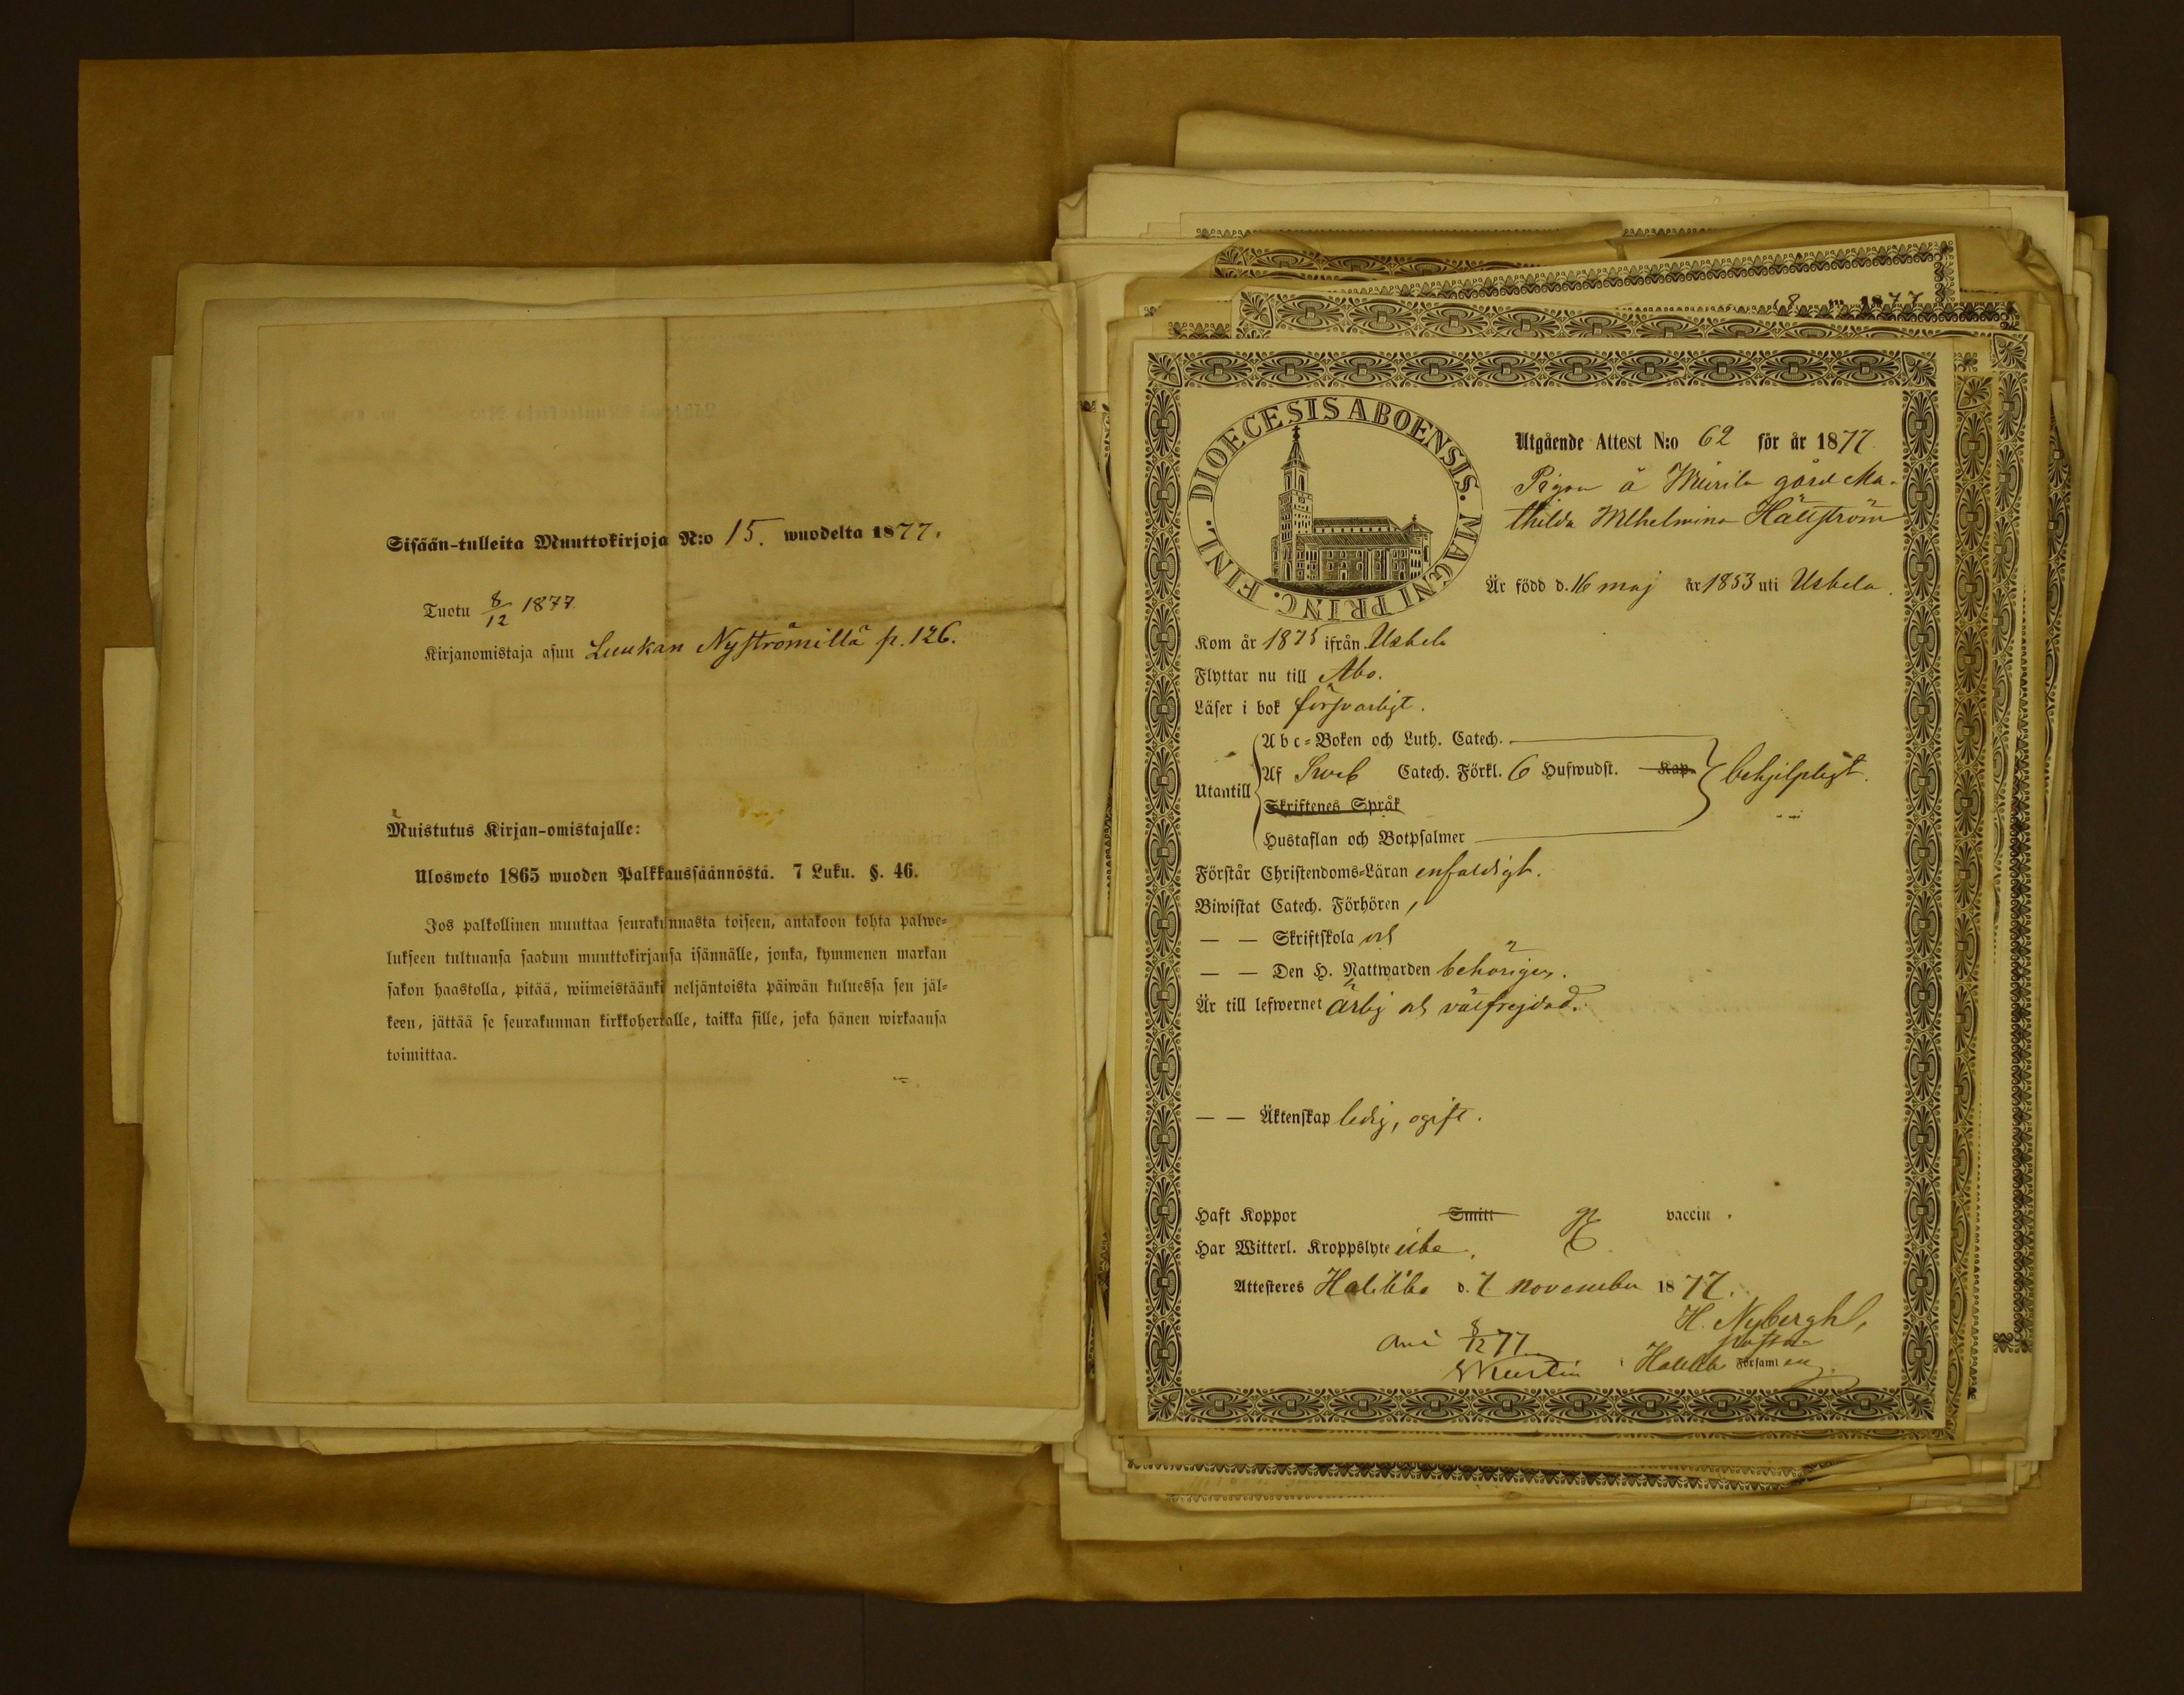 Sisään-tulleita Muuttokirjoja N:o 15. wuodelta 1877.
Tuotu 8/12 1877.
Kirjanomistaja asuu Luukan Nyströmillä p. 126.
Muistutus Kirjan-omistajalle:
Ulosweto 1865 wuoden Palkkaussäännöstä. 7 Luku. §. 46.
Jos palkollinen muuttaa seurakunnasta toiseen, antakoon kohta palwe=
lukseen tultuansa saadun muuttokirjansa isännälle, jonka, kymmenen markan
sakon haastolla, pitää, wiimeistäänki neljäntoista päiwän kuluessa sen jäl=
keen, jättää se seurakunnan kirkkoherralle, taikka sille, joka hänen wirkaansa
toimittaa.
8 1877
DIOECESIS ABOENSIS. MAGNI PRINC. FINL.
Utgående Attest N:o 62 för år 1877.
Pigan å gård Ma-
thilda Wilhelmina Hällström
Är född d. 16 maj år 1853 uti Uskela.
Kom år 1875 ifrån Uskela
Flyttar nu till Åbo.
Läser i bok försvarligt.
Utantill
Abc=Boken och Luth. Catech.
Af Sveb Catech. Förkl. 6 Hufwudst. Kap.
Skriftenes Språk
Hustaflan och Botpsalmer
behjelpligt.
Förstår Christendoms=Läran enfaldigt.
Biwistat Catech. Förhören,
— — Skriftskola och
— — Den H. Nattwarden behörigen.
Är till lefwernet ärlig och välfrejdad.
— — Äktenskap ledig, ogift.
Haft Koppor Smitt vaccin.
Har Witterl. Kroppslyte icke.
Attesteres Halikko d. 7 November 1877.
H. Nybergh,
8/12 77
i Halikko Församl en.